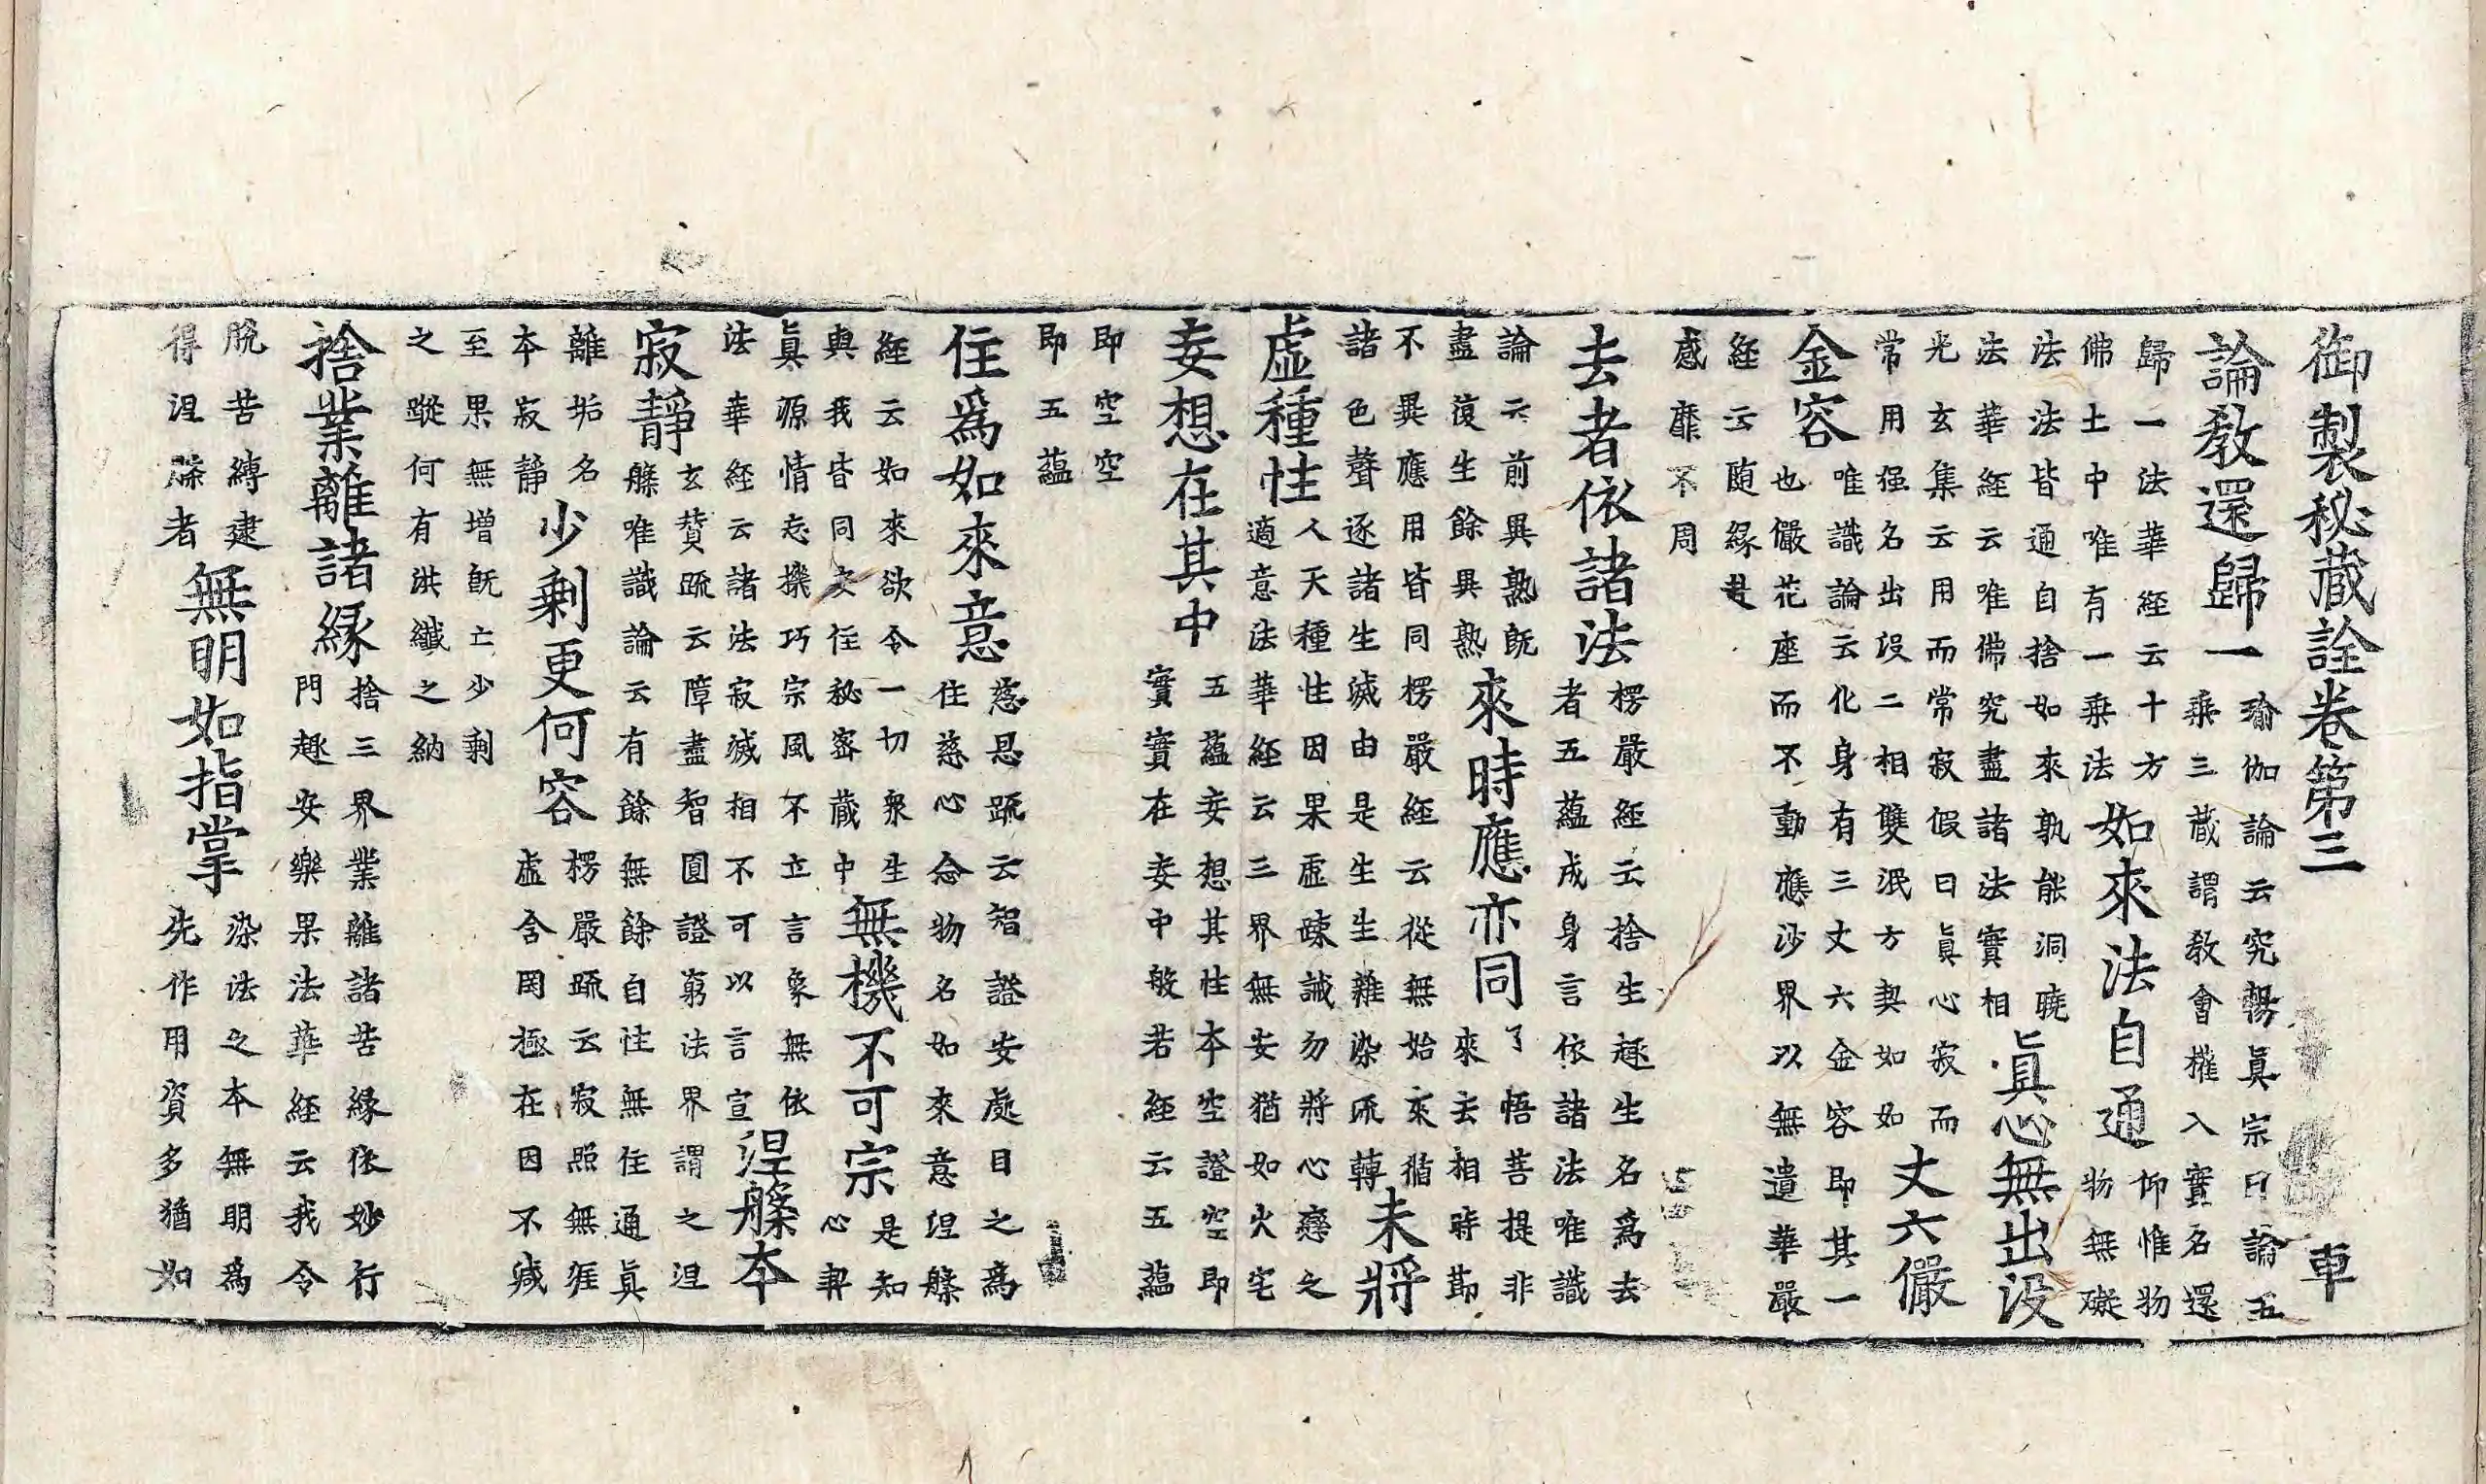 御製秘藏詮卷第三　車
論教還歸一
瑜伽論云究暢眞宗曰論五
乘三藏謂教會權入實名還
歸一法華經云十方
佛土中唯有一乘法
如來法自通
仰惟物
物無礙
法法皆通自捨如來孰能洞曉
法華經云唯佛究盡諸法實相
眞心無出没
光玄集云用而常寂假曰眞心寂而
常用强名出没二相雙泯方契如如
丈六儼
金容
唯識論云化身有三丈六金容即其一
也儼花座而不動應沙界以無遺華嚴
經云随緣赴
感靡不周
去者依諸法
楞嚴經云捨生趣生名爲去
者五蘊成身言依諸法唯識
論云前異熟既
盡復生餘異熟
來時應亦同
了悟菩提非
來去相時節
不異應用皆同楞嚴經云從無始來循
諸色聲逐諸生滅由是生生雜染流轉
未將
虛種性
人天種性因果虛疎誡勿將心戀之
適意法華經云三界無安猶如火宅
妄想在其中
五蘊妄想其性本空證空即
實實在妄中般若經云五蘊
即空空
即五蘊
住爲如來意
慈恩疏云智證安處目之爲
住慈心念物名如來意涅槃
經云如來欲令一切衆生
與我皆同文任秘密藏中
無機不可宗
是知
心契
眞源情忘機巧宗風不立言象無依
法華經云諸法寂滅相不可以言宣
涅槃本
寂靜
玄賛疏云障盡智圓證窮法界謂之涅
槃唯識論云有餘無餘自性無住通眞
離垢名
本寂靜
少剩更何容
楞嚴疏云寂照無涯
虛含罔極在因不減
至果無增既亡少剩
之蹤何有洪纖之納
捨業離諸緣
捨三界業離諸苦緣依妙行
門趣安樂果法華經云我令
脫苦縛逮
得涅槃者
無明如指掌
染法之本無明爲
先作用資多猶如